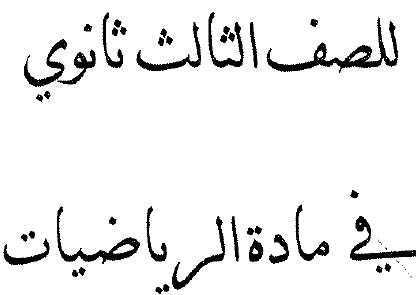 للصف الثالث ثانوي
في مادة الرياضيات